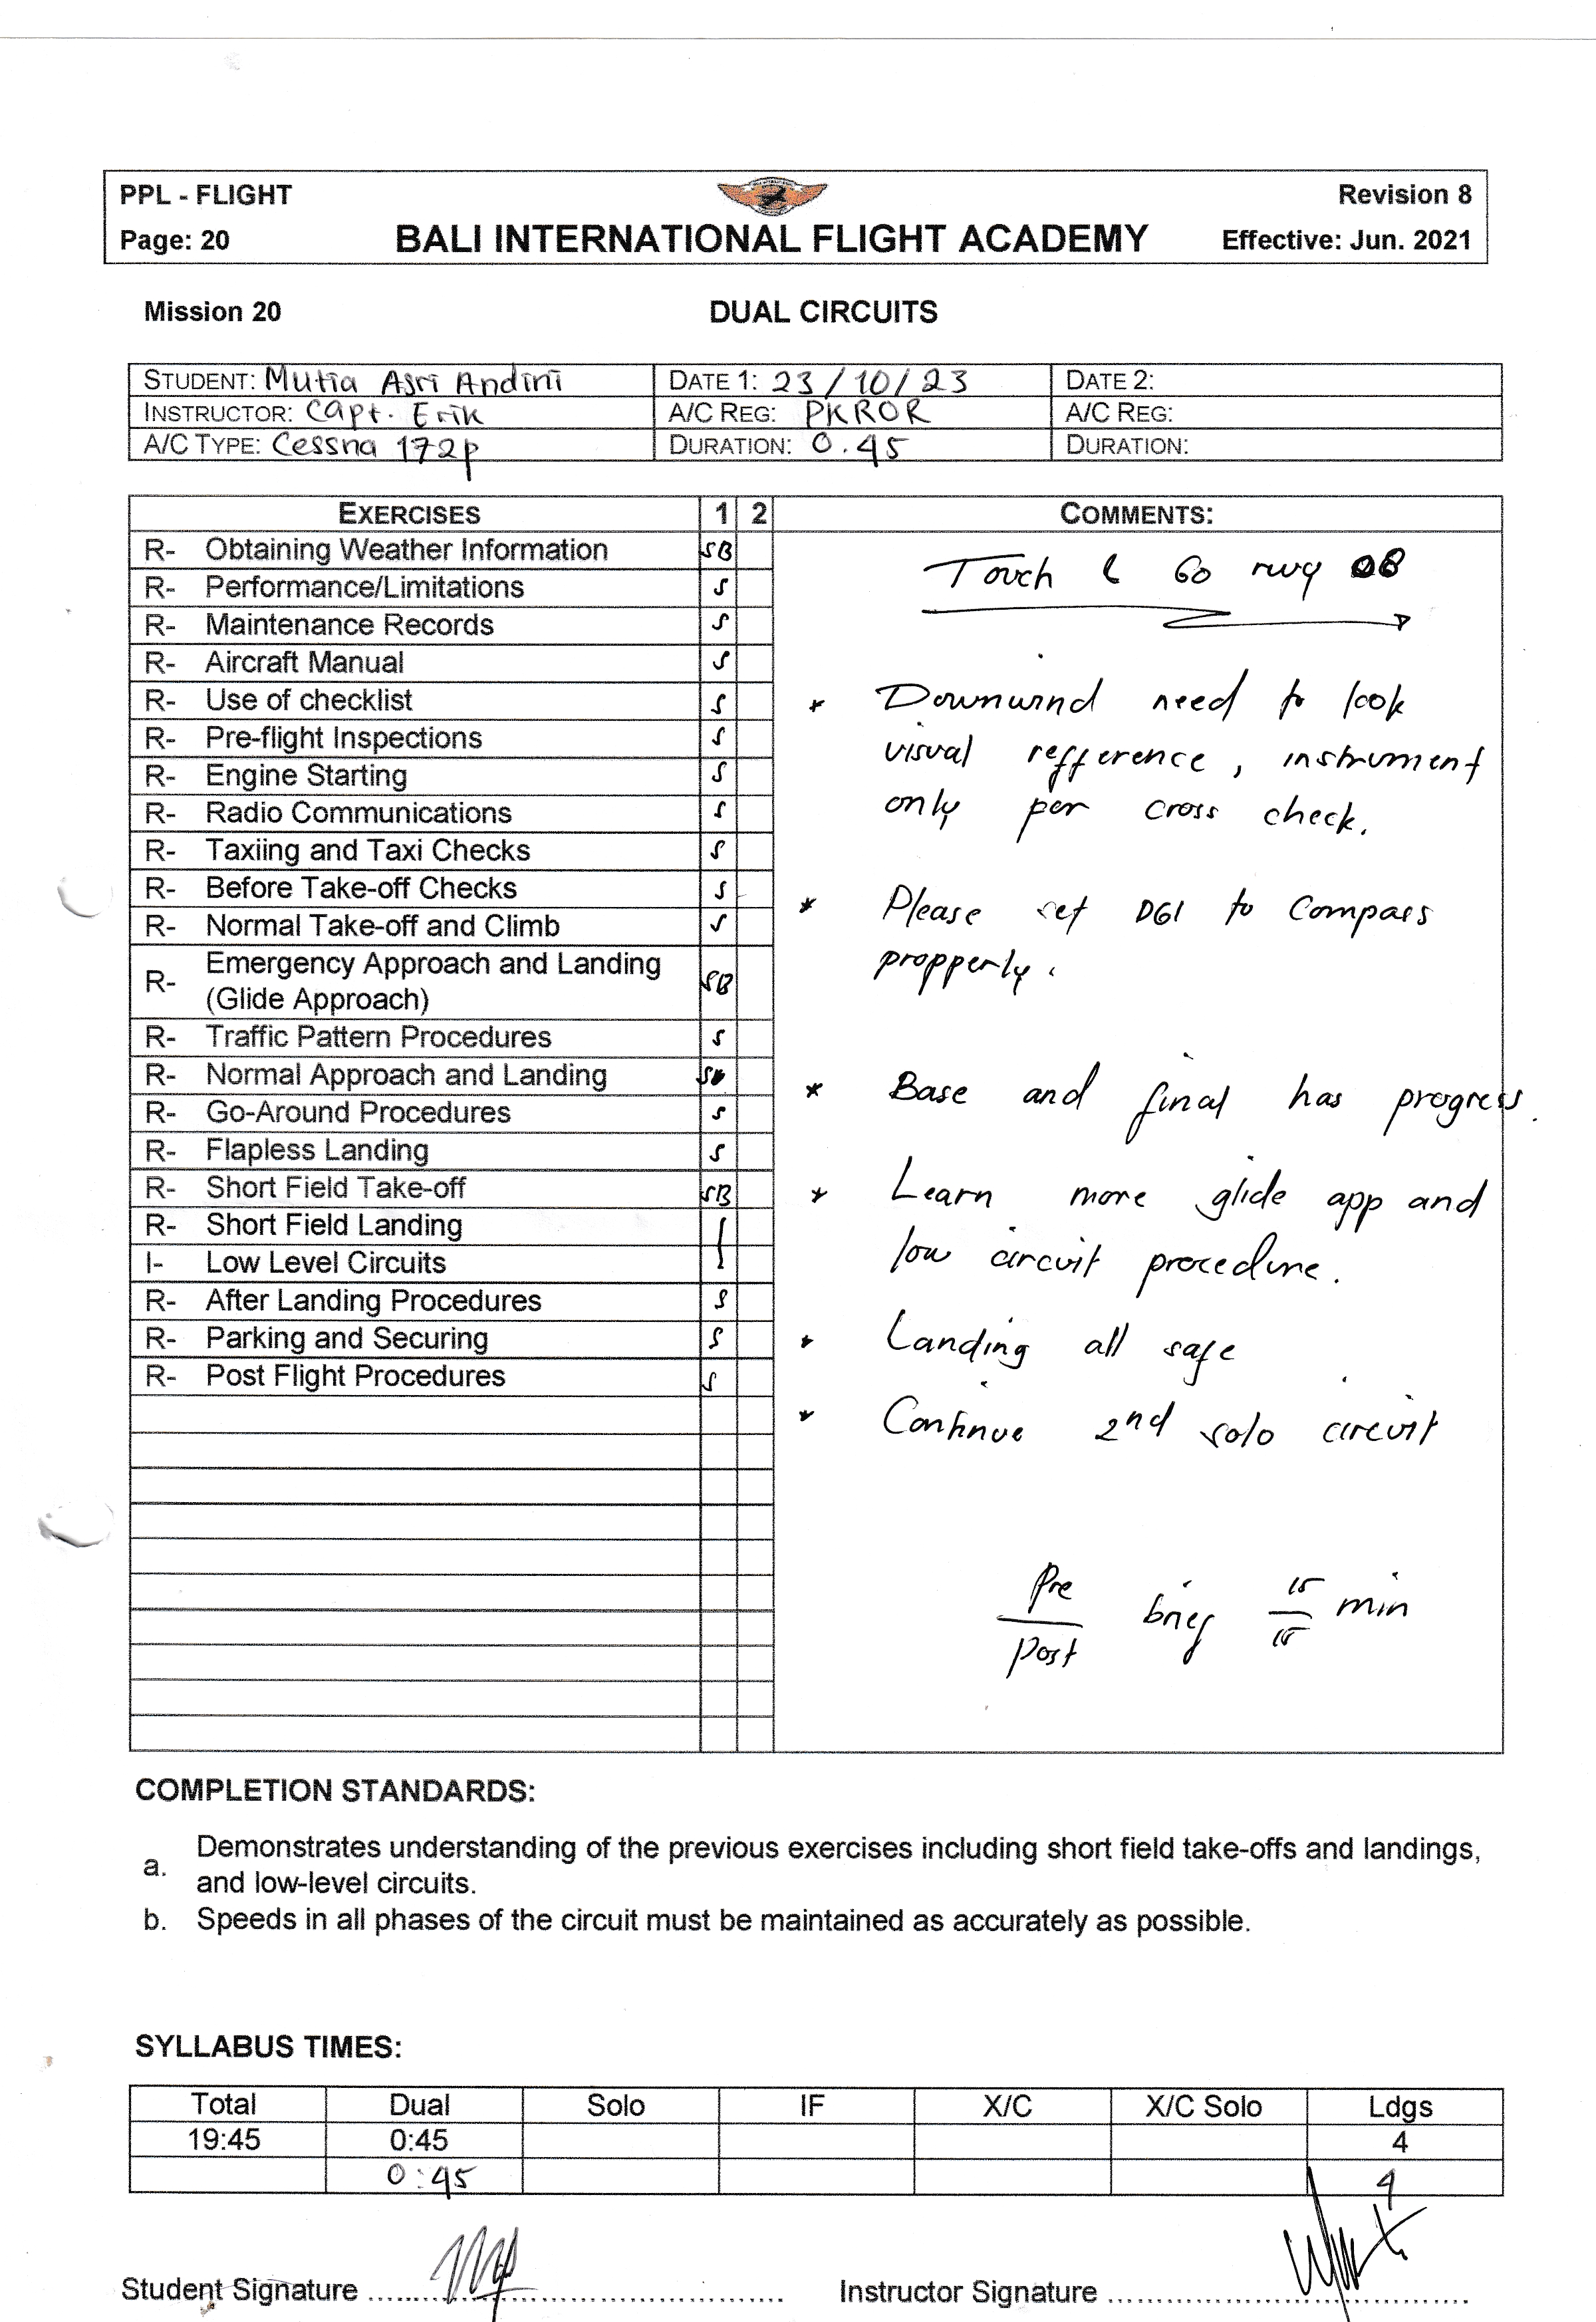 PPL - FLIGHT
Revision 8
Page: 20
BALI INTERNATIONAL FLIGHT ACADEMY
Effective: Jun. 2021
Mission 20
DUAL CIRCUITS
STUDENT: Mutia Asri Andini
DATE 1: 23/10/23
DATE 2:
INSTRUCTOR: Capt. Erik
A/C REG: PKROR
A/C REG:
A/C TYPE: Cessna 172p
DURATION: 0.45
DURATION:
EXERCISES 1 2
R- Obtaining Weather Information SB
R- Performance/Limitations S
R- Maintenance Records S
R- Aircraft Manual S
R- Use of checklist S
R- Pre-flight Inspections S
R- Engine Starting S
R- Radio Communications S
R- Taxiing and Taxi Checks S
R- Before Take-off Checks S
R- Normal Take-off and Climb S
R- Emergency Approach and Landing
(Glide Approach) SB
R- Traffic Pattern Procedures S
R- Normal Approach and Landing S
R- Go-Around Procedures S
R- Flapless Landing S
R- Short Field Take-off SB
R- Short Field Landing
I- Low Level Circuits
R- After Landing Procedures S
R- Parking and Securing S
R- Post Flight Procedures S
COMMENTS:
Touch & Go rwy 08
* Downwind need to look
visual refference, instrument
only per cross check.
* Please set DGI to Compass
propperly.
* Base and final has progress.
* Learn more glide app and
low circuit procedure.
* Landing all safe
* Continue 2nd solo circuit
Pre
post
brief
15
15
min
COMPLETION STANDARDS:
a. Demonstrates understanding of the previous exercises including short field take-offs and landings,
and low-level circuits.
b. Speeds in all phases of the circuit must be maintained as accurately as possible.
SYLLABUS TIMES:
Total Dual Solo IF X/C X/C Solo Ldgs
19:45 0:45 4
0:45 4
Student Signature
Instructor Signature